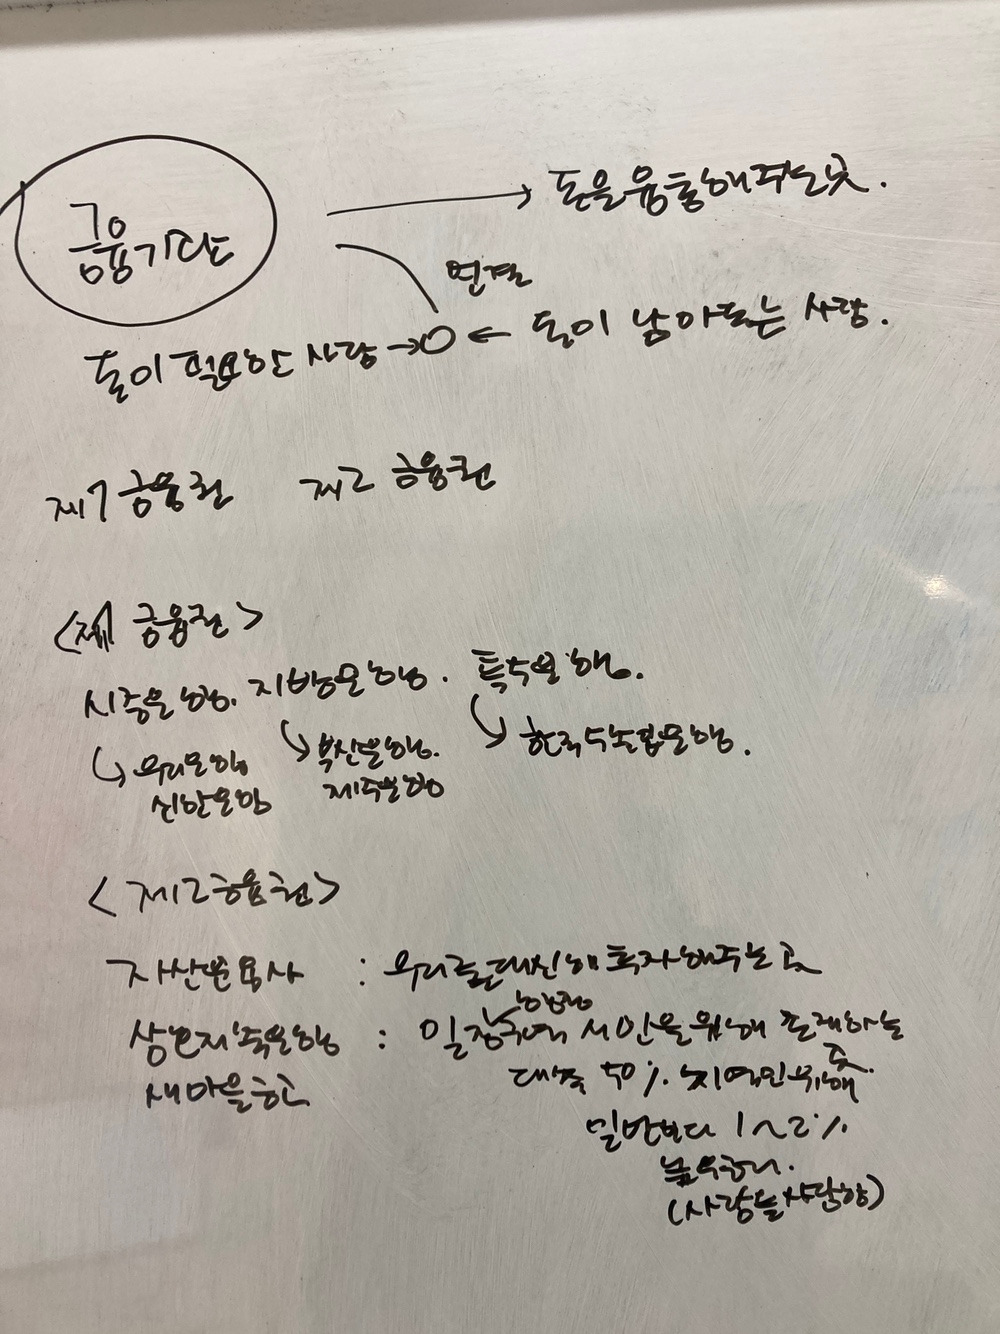 금융기관 → 돈을 융통해주는곳.
연결
돈이 필요한 사람 → ← 돈이 남아도는 사람.
제1금융권 제2 금융권
<제1 금융권>
시중은행. 지방은행. 특수은행.
우리은행 부산은행. 한국수출입은행.
신한은행 제주은행
<제2금융권>
자산운용사 : 우리를 대신해 투자해주는 곳
상호저축은행 : 일정 구역 서민을 위해 존재하는 곳.
행정
대출 50% 지역민 위해
새마을
일반보다 1~2%
높은금리.